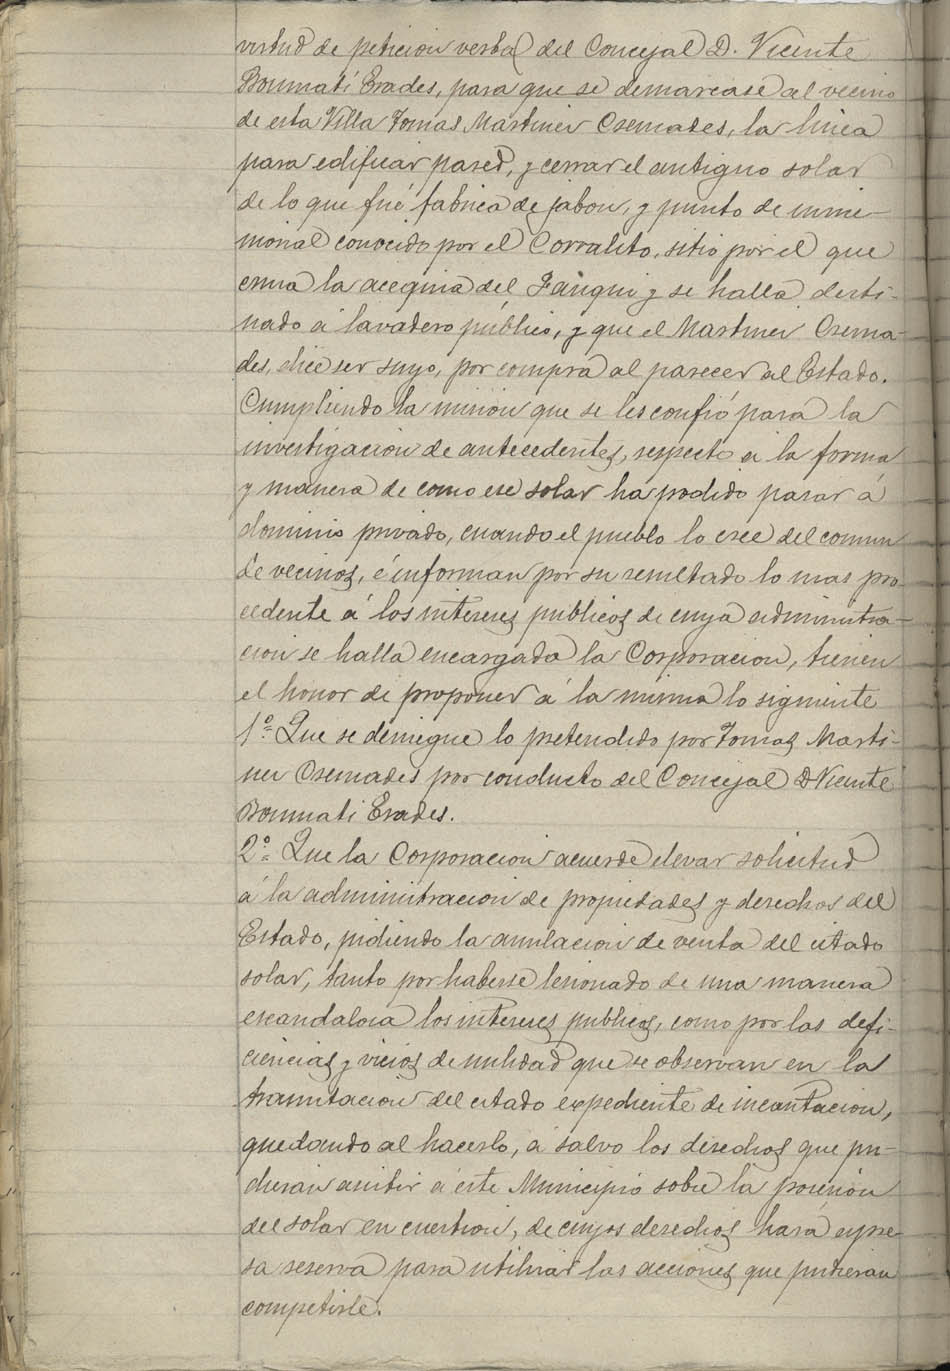 virtud de peticion verbal del Concejal D. Vicente
Bonmatí Erades, para que se demarcase al vecino
de esta Villa Tomas Martinez Cremades, la linea
para edificar pared, y cerrar el antiguo solar
de lo que fué fabrica de jabon, y punto de inme-
morial conocido por el Corralito, sitio por el que
cruza la acequia del Fauqui y se halla desti-
nado á lavadero público, y que el Martinez Crema-
des, dice ser suyo, por compra al parecer al Estado.
Cumpliendo la mision que se les confió para la
investigacion de antecedentes, respecto á la forma
y manera de como ese solar ha podido pasar á
dominio privado, cuando el pueblo lo cree del comun
de vecinos, é informan por su resultado lo mas pro-
cedente á los intereses publicos de cuya administra-
cion se halla encargada la Corporacion, tienen
el honor de proponer á la misma lo siguiente
1º= Que se deniegue lo pretendido por Tomas Marti-
nez Cremades por conducto del Concejal D Vicente
Bonmati Erades.
2º= Que la Corporacion acuerde elevar solicitud
á la administracion de propiedades y derechos del
Estado, pidiendo la anulacion de venta del citado
solar, tanto por haberse lesionado de una manera
escandalosa los intereses publicos, como por las defi-
ciencias y vicios de nulidad que se observan en la
tramitacion del citado expediente de incautacion,
quedando al hacerlo, á salvo los derechos que pu-
dieran asistir á este Municipio sobre la posesión
del solar en cuestion, de cuyos derechos hará expre-
sa reserva para utilizar las acciones que pudieran
competirle.